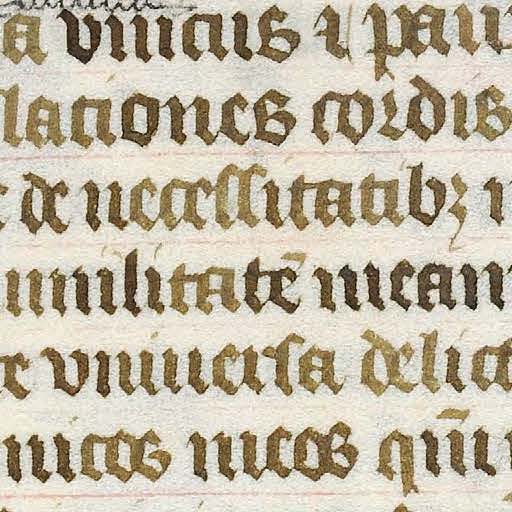 a vnicus ⁊ pau
lationes cordis
de necessitatibꝫ
umilitatē mean
vniuersa delict
micos meos qm̄